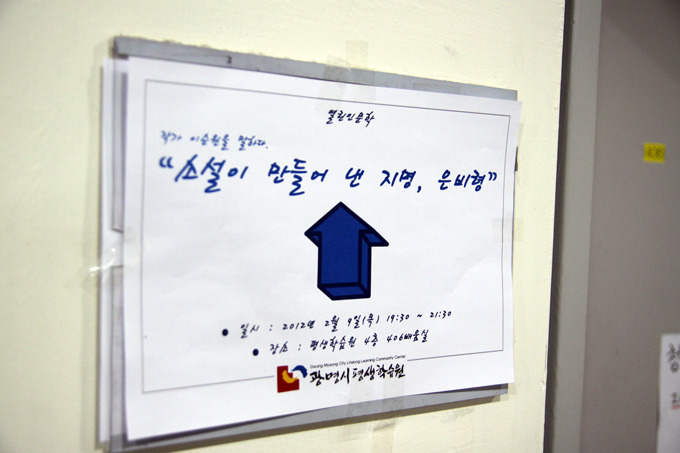 열린인문학
작가 이순원을 말하다.
“소설이 만들어 낸 지명, 은비령”
• 일시 : 2012년 2월 9일(목) 19:30 ~ 21:30
• 장소 : 평생학습원 4층 406배움실
Gwang Myeong City Lifelong Learning Community Center
광명시평생학습원